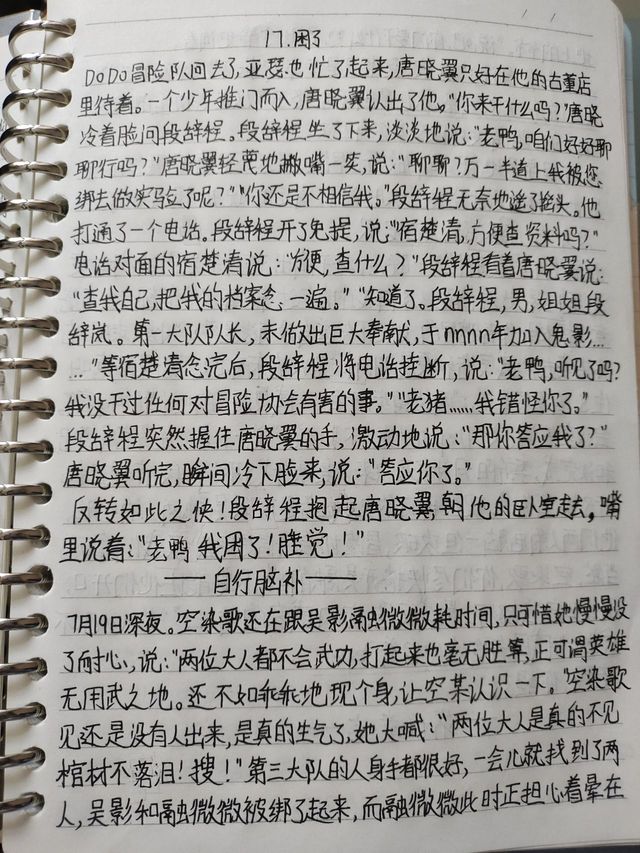 17.困了
DODO冒险队回去了,亚瑟也忙了起来,唐晓翼只好在他的古董店
里待着。一个少年推门而入,唐晓翼认出了他。“你来干什么吗?”唐晓
冷着脸问段辞程。段辞程坐了下来,淡淡地说:“老鸭,咱们好好聊
聊行吗?”唐晓翼轻蔑地撇嘴一笑,说:“聊聊?万一半道上我被您
绑去做实验了呢?”“你还是不相信我。”段辞程无奈地摇了摇头。他
打通了一个电话。段辞程开了免提,说:“宿楚清,方便查资料吗?”
电话对面的宿楚清说:“方便,查什么?”段辞程看着唐晓翼说:
“查我自己,把我的档案念一遍。”“知道了。段辞程,男,姐姐段
辞岚。第一大队队长,未做出巨大奉献,于nnnn年加入鬼影...
...”等宿楚清念完后,段辞程将电话挂断,说:“老鸭,听见了吗?
我没干过任何对冒险协会有害的事。”“老猪......我错怪你了。”
段辞程突然握住唐晓翼的手,激动地说:“那你答应我了?”
唐晓翼听完,瞬间冷下脸来,说:“答应你了。”
反转如此之快!段辞程抱起唐晓翼,朝他的卧室走去,嘴
里说着:“老鸭 我困了!睡觉!”
——自行脑补——
7月19日深夜。空染歌还在跟吴影融微微耗时间,只可惜她慢慢没
了耐心,说:“两位大人都不会武功,打起来也毫无胜算,正可谓英雄
无用武之地。还不如乖乖地现个身,让空某认识一下。”空染歌
见还是没有人出来,是真的生气了,她大喊:“两位大人是真的不见
棺材不落泪!搜!”第三大队的人身手都很好,一会儿就找到了两
人,吴影和融微微被绑了起来,而融微微此时正担心着晕在